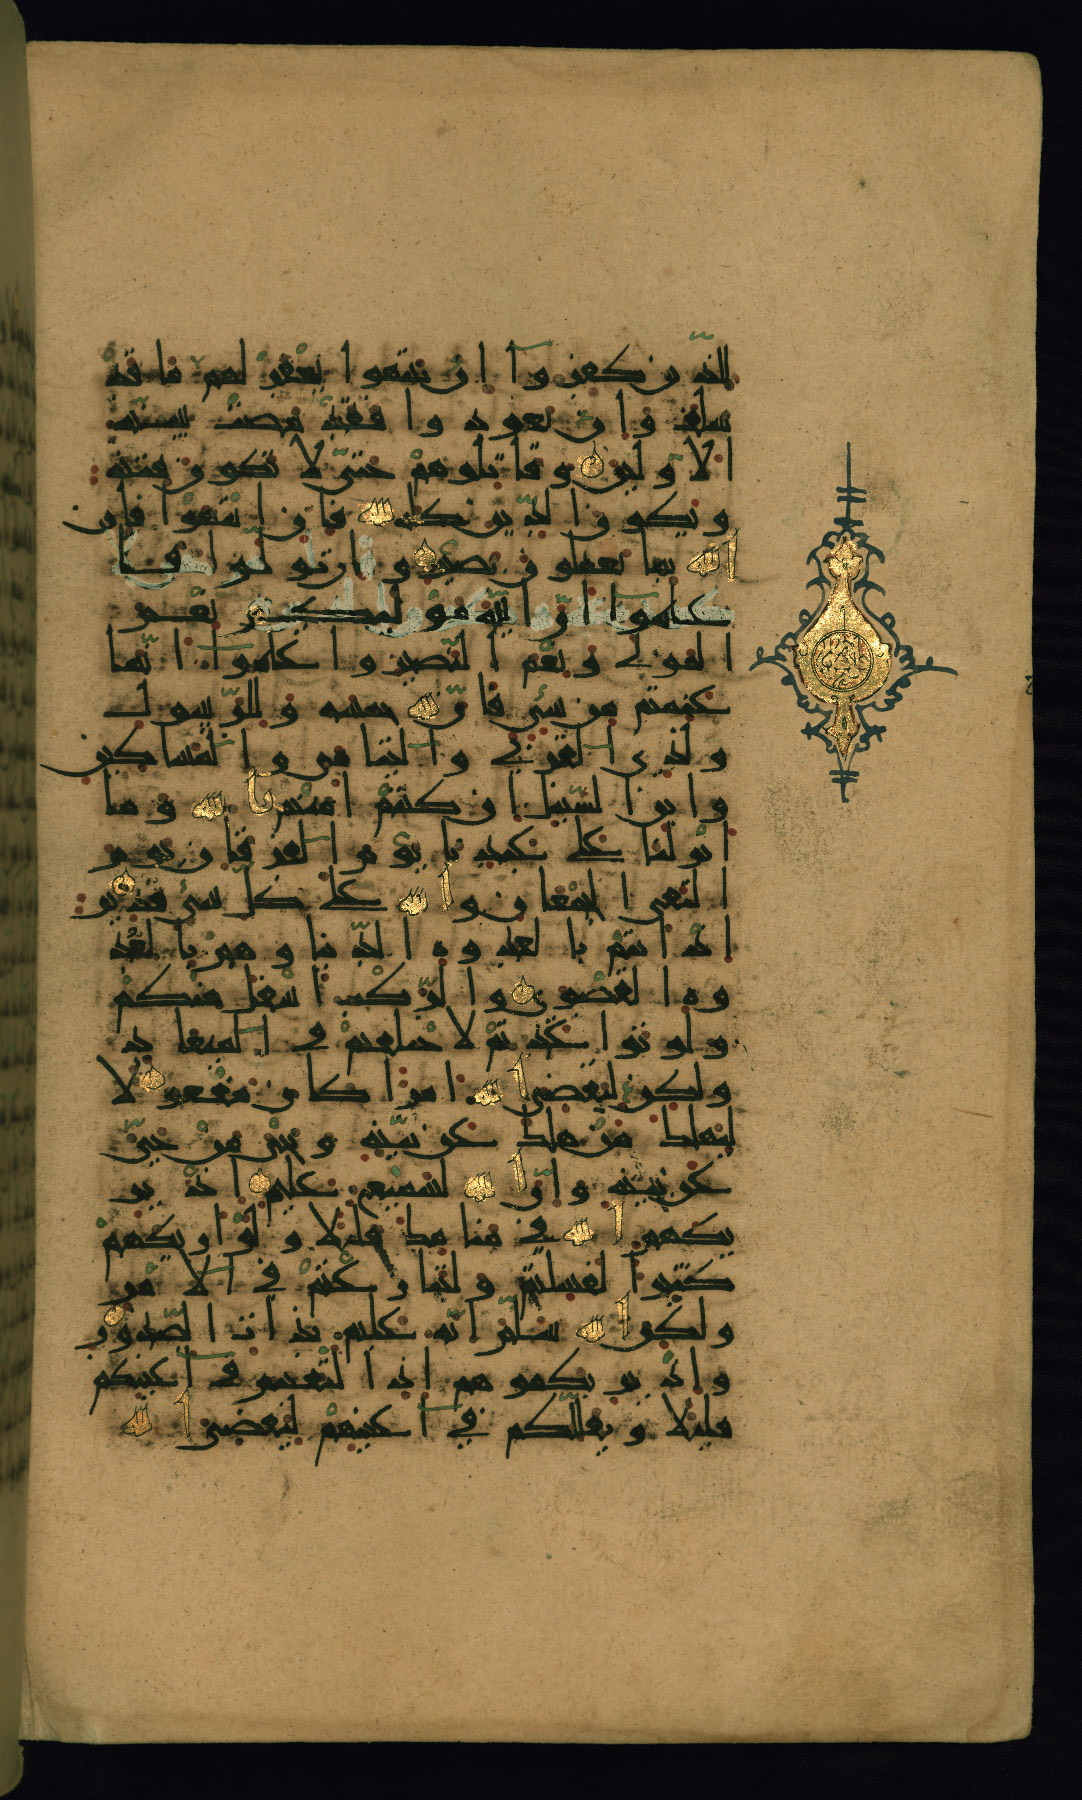 للذين كفروا ان ينتهوا يغفر لهم ما قد
سلف وان يعودوا فقد مضت سنة
الاولين وقاتلوهم حتى لا تكون فتنة
ويكون الدين كله لله فان انتهوا فان
الله بما يعملون بصير وان تولوا فا
علموا ان الله موليكم نعم
المولى ونعم النصير واعلموا انما
غنمتم من شئ فان لله خمسه وللرسول
ولذى القربى واليتامى والمساكين
وابن السبيل ان كنتم امنتم بالله وما
انزلنا على عبدنا يوم الفرقان يوم
التقى الجمعان والله على كل شئ قدير
اذ انتم بالعدوة الدنيا وهم بالعد
وة القصوى والركب اسفل منكم
ولو تواعدتم لاختلفتم فى الميعاد
ولكن ليقضى الله امرا كان مفعولا
ليهلك من هلك عن بينة ويحيى من حى
عن بينة وان الله لسميع عليم اذ ير
يكهم الله فى منامك قليلا ولو اريكهم
كثيرا لفشلتم ولتنازعتم فى الامر
ولكن الله سلم انه عليم بذات الصدور
واذ يريكموهم اذ التقيتم فى اعينكم
قليلا ويقللكم فى اعينهم ليقضى الله